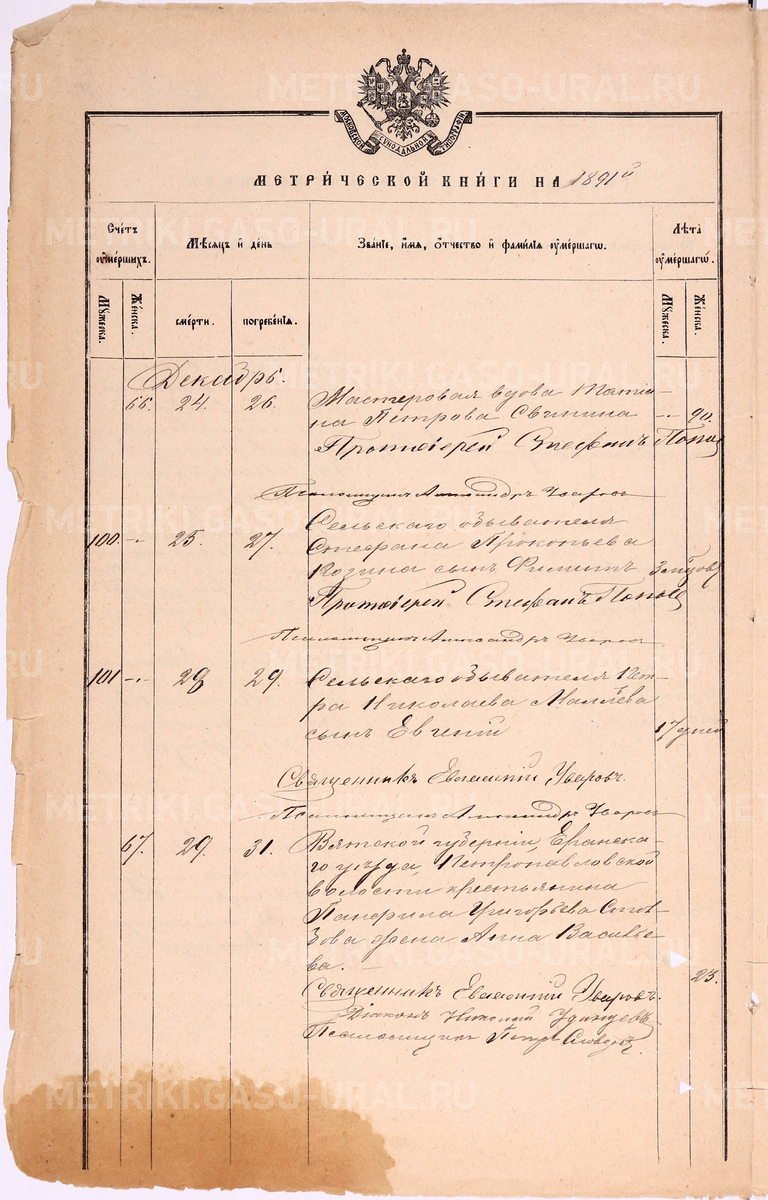 МОСКОВСКОЙ СѴНОДАЛЬНОЙ ТИПОГРАФІИ
МЕТРИЧЕСКОЙ КНИГИ НА 1891й
Счетъ умершихъ.
Мѣсяцъ и день
Званіе, имя, отчество и фамилія умершаго.
Лѣта умершаго.
Мужеска.
Женска.
смерти.
погребенія.
Мужеска.
Женска.
Декабрь.
66. 24. 26. Мастеровая вдова Татіа-
на Петрова Свинина -"- 90.
Протоіерей Стефанъ Попов
Псаломщикъ Александръ Уваровъ
Сельскаго обывателя
100. -"- 25. 27. Стефана Прокопьева
Козина сынъ Филипъ 3 мѣсяцов
Протоіерей Стефанъ Попов
Псаломщикъ Александръ Уваровъ
101 -"- 28 29. Сельскаго обывателя Пет-
ра Николаева Маллѣева
сынъ Евгеній 17 дней
Священникъ Евлампій Уваровъ.
Псаломщикъ Александръ Уваровъ
67. 29. 31. Вятской губерніи, Еранска-
го уѣзда, Петропавловской
волости крестьянина
Панфила Григорьева
зова жена Анна Василье-
ва. 23.
Священникъ Евлампій Уваровъ.
Діаконъ Николай Удинцевъ
Псаломщикъ Петръ Словцовъ
METRIKI.GASO-URAL.RU